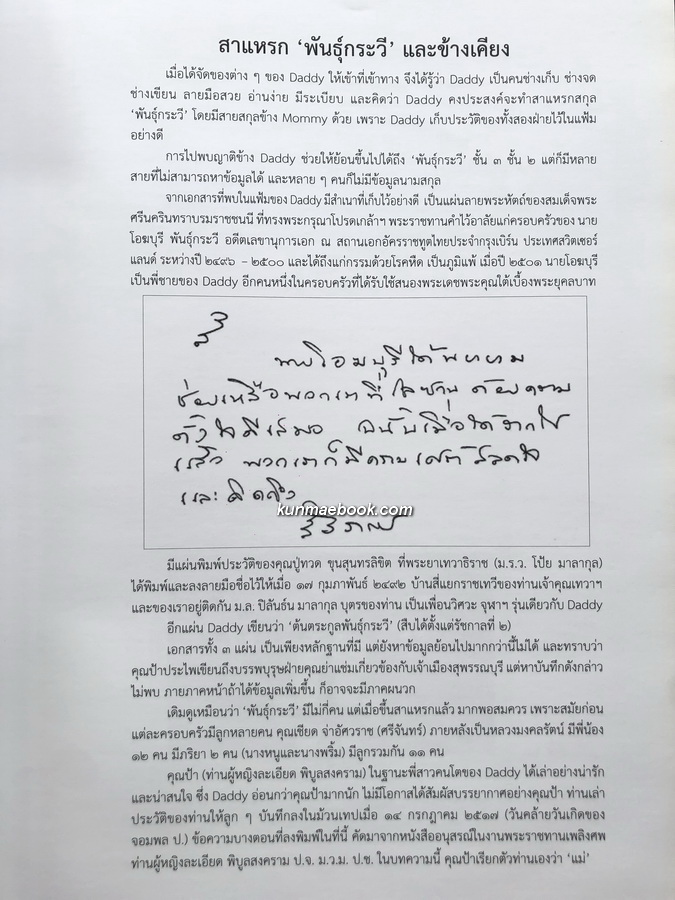 สาแหรก ‘พันธุ์กระวี’ และข้างเคียง
เมื่อได้จัดของต่าง ๆ ของ Daddy ให้เข้าที่เข้าทาง จึงได้รู้ว่า Daddy เป็นคนช่างเก็บ ช่างจด
ช่างเขียน ลายมือสวย อ่านง่าย มีระเบียบ และคิดว่า Daddy คงประสงค์จะทำสาแหรกสกุล
‘พันธุ์กระวี’ โดยมีสายสกุลข้าง Mommy ด้วย เพราะ Daddy เก็บประวัติของทั้งสองฝ่ายไว้ในแฟ้ม
อย่างดี
การไปพบญาติข้าง Daddy ช่วยให้ย้อนขึ้นไปได้ถึง ‘พันธุ์กระวี’ ชั้น ๓ ชั้น ๒ แต่ก็มีหลาย
สายที่ไม่สามารถหาข้อมูลได้ และหลาย ๆ คนก็ไม่มีข้อมูลนามสกุล
จากเอกสารที่พบในแฟ้มของ Daddy มีสำเนาที่เก็บไว้อย่างดี เป็นแผ่นลายพระหัตถ์ของสมเด็จพระ
ศรีนครินทราบรมราชชนนี ที่ทรงพระกรุณาโปรดเกล้าฯ พระราชทานคำไว้อาลัยแก่ครอบครัวของ นาย
โอฆบุรี พันธุ์กระวี อดีตเลขานุการเอก ณ สถานเอกอัครราชทูตไทยประจำกรุงเบิร์น ประเทศสวิตเซอร์
แลนด์ ระหว่างปี ๒๔๙๖ – ๒๕๐๐ และได้ถึงแก่กรรมด้วยโรคหืด เป็นภูมิแพ้ เมื่อปี ๒๕๐๑ นายโอฆบุรี
เป็นพี่ชายของ Daddy อีกคนหนึ่งในครอบครัวที่ได้รับใช้สนองพระเดชพระคุณใต้เบื้องพระยุคลบาท
นายโอฆบุรีได้พยายาม
ช่วยเหลือพวกเราที่โลซานน์ ด้วยความ
ตั้งใจดีเสมอ ฉนั้นเมื่อได้จากไป
แล้ว พวกเราก็มีความเศร้าสลดใจ
และคิดถึง
kunmaebook.com
มีแผ่นพิมพ์ประวัติของคุณปู่ทวด ขุนสุนทรลิขิต ที่พระยาเทวาธิราช (ม.ร.ว. โป้ย มาลากุล)
ได้พิมพ์และลงลายมือชื่อไว้ให้เมื่อ ๑๗ กุมภาพันธ์ ๒๔๙๒ บ้านสี่แยกราชเทวีของท่านเจ้าคุณเทวาฯ
และของเราอยู่ติดกัน ม.ล. ปิลันธน์ มาลากุล บุตรของท่าน เป็นเพื่อนวิศวะ จุฬาฯ รุ่นเดียวกับ Daddy
อีกแผ่น Daddy เขียนว่า ‘ต้นตระกูลพันธุ์กระวี’ (สืบได้ตั้งแต่รัชกาลที่ ๒)
เอกสารทั้ง ๓ แผ่น เป็นเพียงหลักฐานที่มี แต่ยังหาข้อมูลย้อนไปมากกว่านี้ไม่ได้ และทราบว่า
คุณป้าประไพเขียนถึงบรรพบุรุษฝ่ายคุณย่าแช่มเกี่ยวข้องกับเจ้าเมืองสุพรรณบุรี แต่หาบันทึกดังกล่าว
ไม่พบ ภายภาคหน้าถ้าได้ข้อมูลเพิ่มขึ้น ก็อาจจะมีภาคผนวก
เดิมดูเหมือนว่า ‘พันธุ์กระวี’ มีไม่กี่คน แต่เมื่อขึ้นสาแหรกแล้ว มากพอสมควร เพราะสมัยก่อน
แต่ละครอบครัวมีลูกหลายคน คุณเชียด จ่าอัศวราช (ศรีจันทร์) ภายหลังเป็นหลวงมงคลรัตน์ มีพี่น้อง
๑๒ คน มีภริยา ๒ คน (นางหนูและนางพริ้ม) มีลูกรวมกัน ๑๑ คน
คุณป้า (ท่านผู้หญิงละเอียด พิบูลสงคราม) ในฐานะพี่สาวคนโตของ Daddy ได้เล่าอย่างน่ารัก
และน่าสนใจ ซึ่ง Daddy อ่อนกว่าคุณป้ามากนัก ไม่มีโอกาสได้สัมผัสบรรยากาศอย่างคุณป้า ท่านเล่า
ประวัติของท่านให้ลูก ๆ บันทึกลงในม้วนเทปเมื่อ ๑๔ กรกฎาคม ๒๕๑๗ (วันคล้ายวันเกิดของ
จอมพล ป.) ข้อความบางตอนที่ลงพิมพ์ในที่นี้ คัดมาจากหนังสืออนุสรณ์ในงานพระราชทานเพลิงศพ
ท่านผู้หญิงละเอียด พิบูลสงคราม ป.จ. ม.ว.ม. ป.ช. ในบทความนี้ คุณป้าเรียกตัวท่านเองว่า ‘แม่’